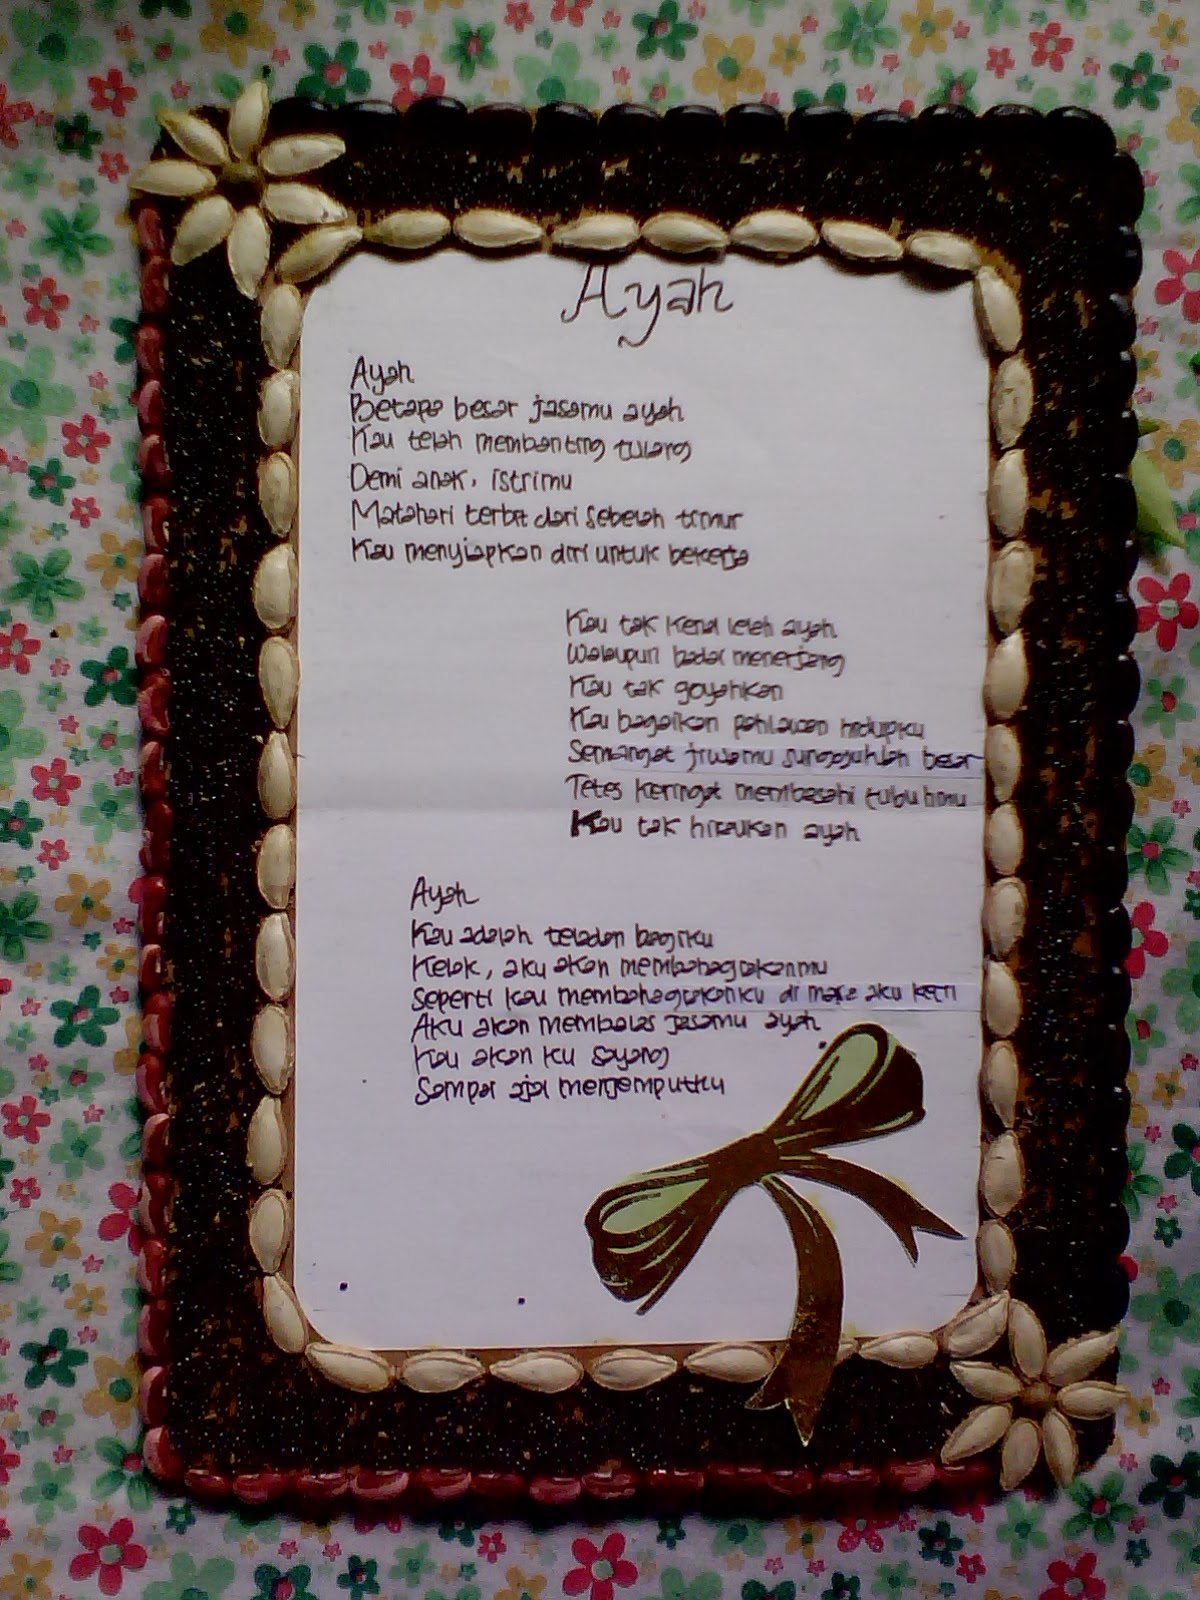 Ayah
Ayah
Betapa besar jasamu ayah
Kau telah membanting tulang
Demi anak, istrimu
Matahari terbit dari sebelah timur
Kau menyiapkan diri untuk bekerja
Kau tak kenal lelah ayah
Walaupun badai menerjang
Kau tak goyahkan
Kau bagaikan pahlawan hidupku
Semangat jiwamu sungguhlah besar
Tetes keringat membasahi tubuhmu
Kau tak hiraukan ayah
Ayah
Kau adalah teladan bagiku
Kelak, aku akan membahagiakanmu
Seperti kau membahagiakanku di masa aku kecil
Aku akan membalas jasamu ayah
Kau akan ku sayang
Sampai ajal menjemputku